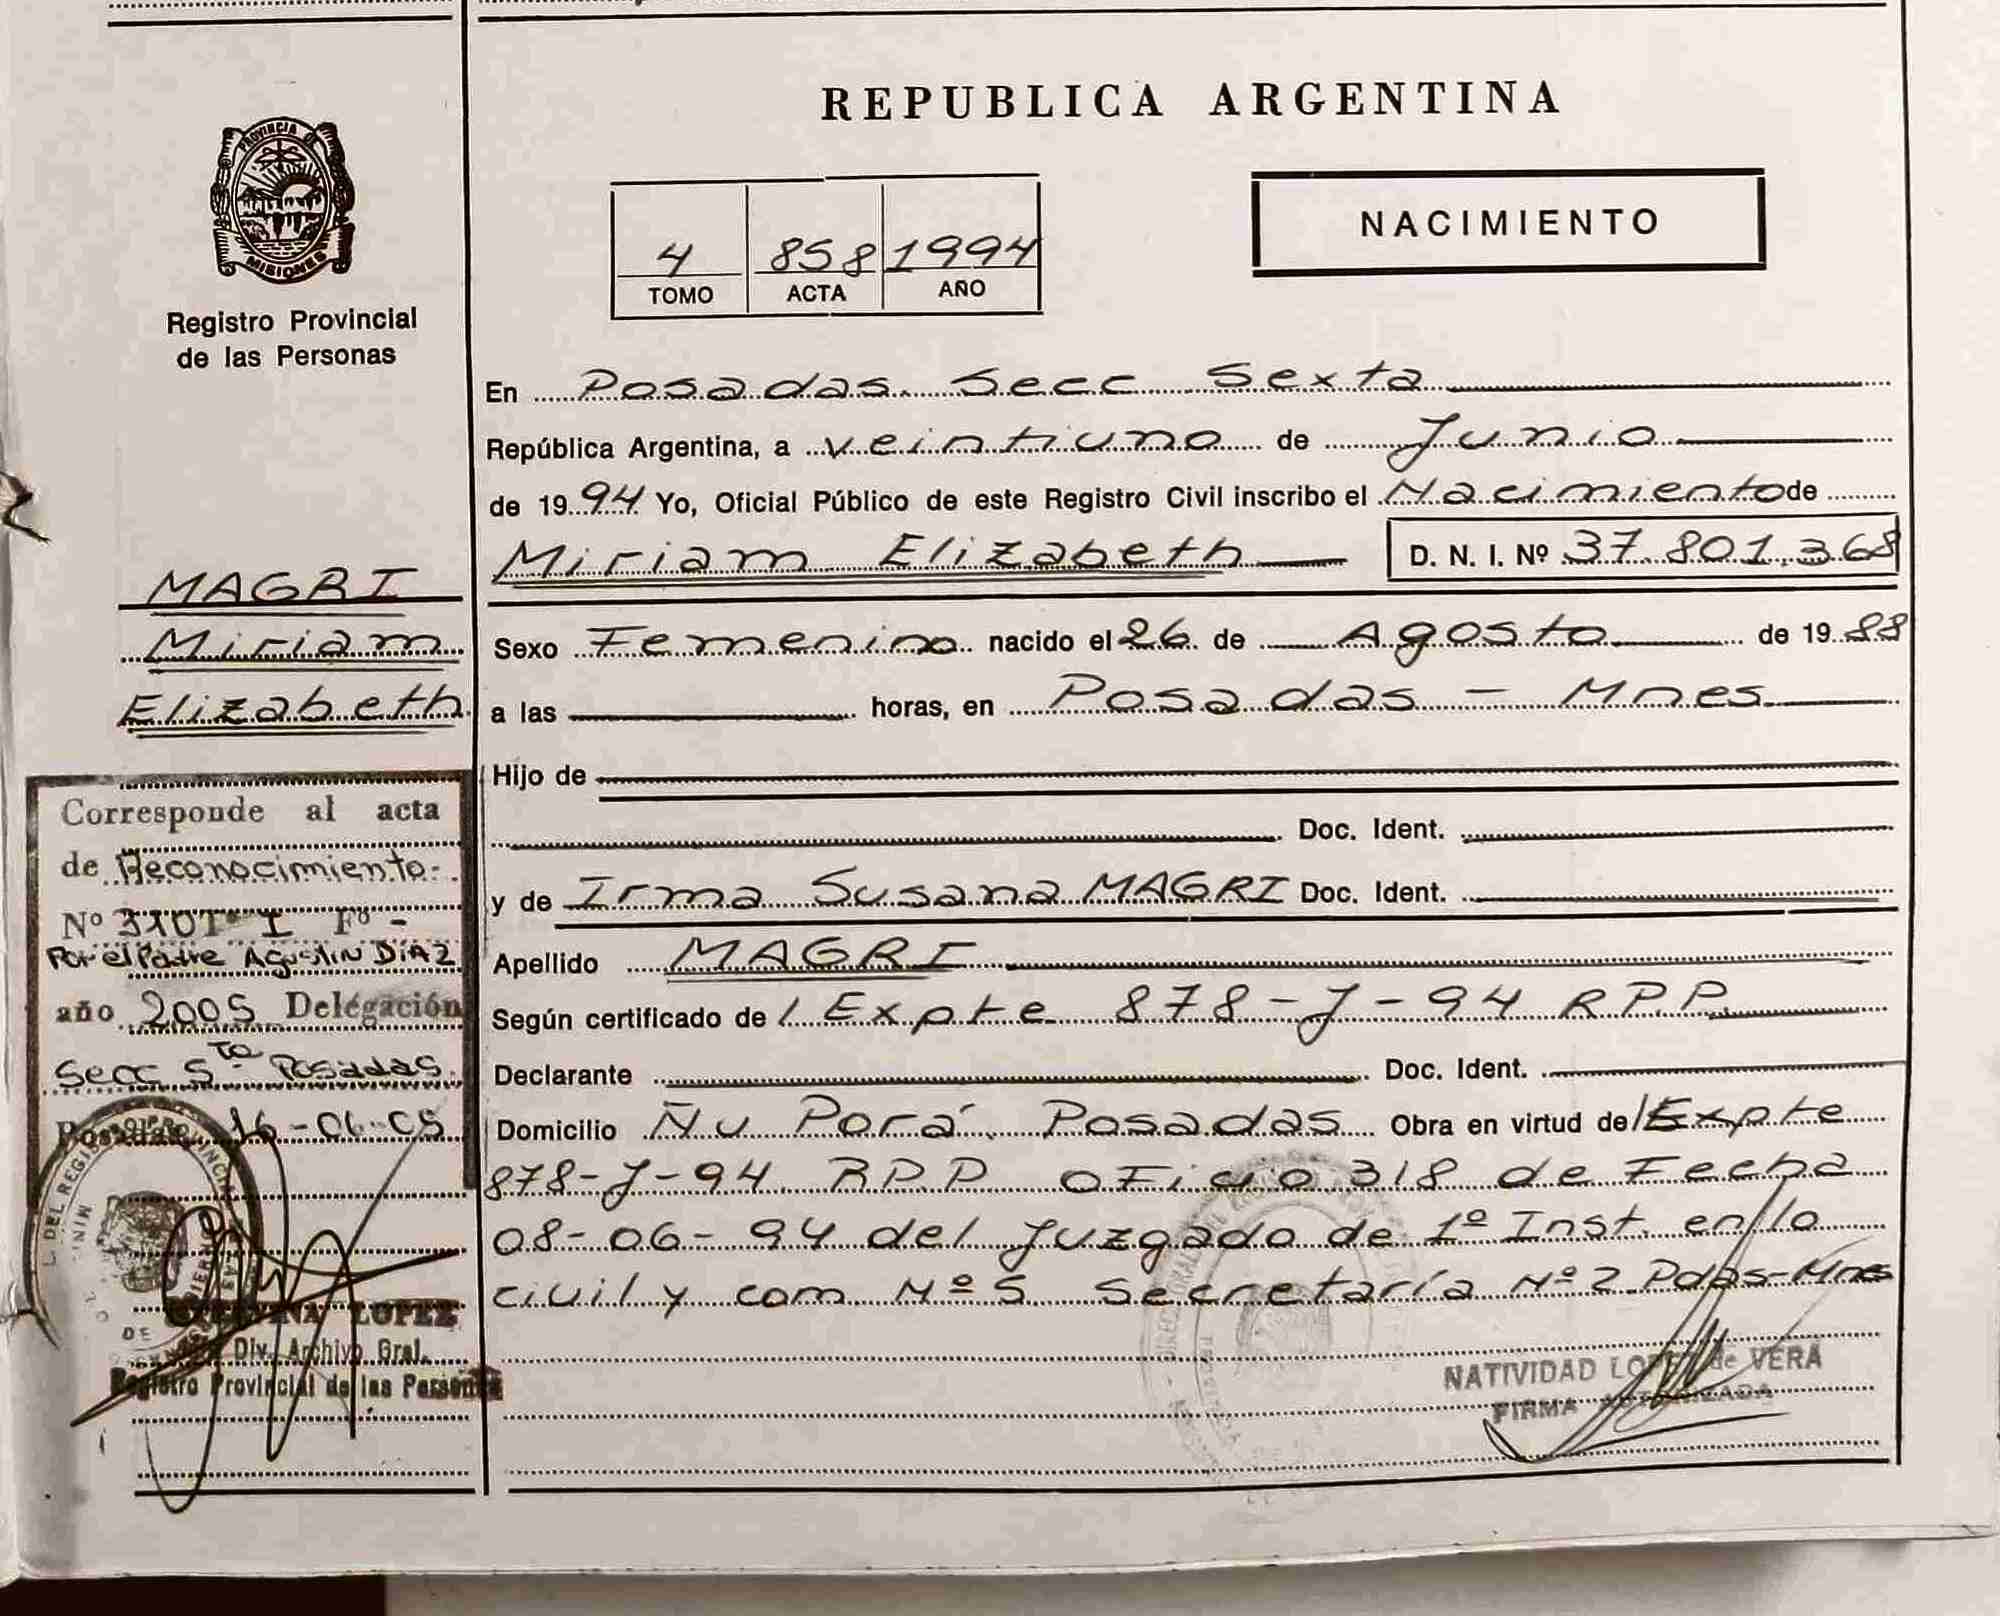 REPUBLICA ARGENTINA
PROVINCIA DE
MISIONES
Registro Provincial
de las Personas
4 858 1994
TOMO ACTA AÑO
NACIMIENTO
En Posadas Secc Sexta
República Argentina, a veintiuno de Junio
de 1994 Yo, Oficial Público de este Registro Civil inscribo el Nacimiento de
Miriam Elizabeth D. N. I. Nº 37.801.368
MAGRI
Miriam
Elizabeth
Sexo Femenino nacido el 26 de Agosto de 1988
a las horas, en Posadas - Mnes
Hijo de
Doc. Ident.
y de Irma Susana MAGRI Doc. Ident.
Apellido MAGRI
Según certificado de / Expte 878-J-94 R.P.P.
Declarante Doc. Ident.
Domicilio Ñu Porá Posadas Obra en virtud de / Expte
878-J-94 R.P.P oficio 318 de Fecha
08-06-94 del Juzgado de 1º Inst. en lo
civil y com Nº 5 Secretaría Nº 2 Pdas-Mnes
NATIVIDAD LOPEZ de VERA
FIRMA AUTORIZADA
Corresponde al acta
de Reconocimiento
Nº 310 Tº I Fº -
Por el Padre Agustin DIAZ
año 2005 Delegación
Secc 5ta Posadas
Posadas, 16-06-05
LOPEZ
Div. Archivo Gral.
Registro Provincial de las Personas